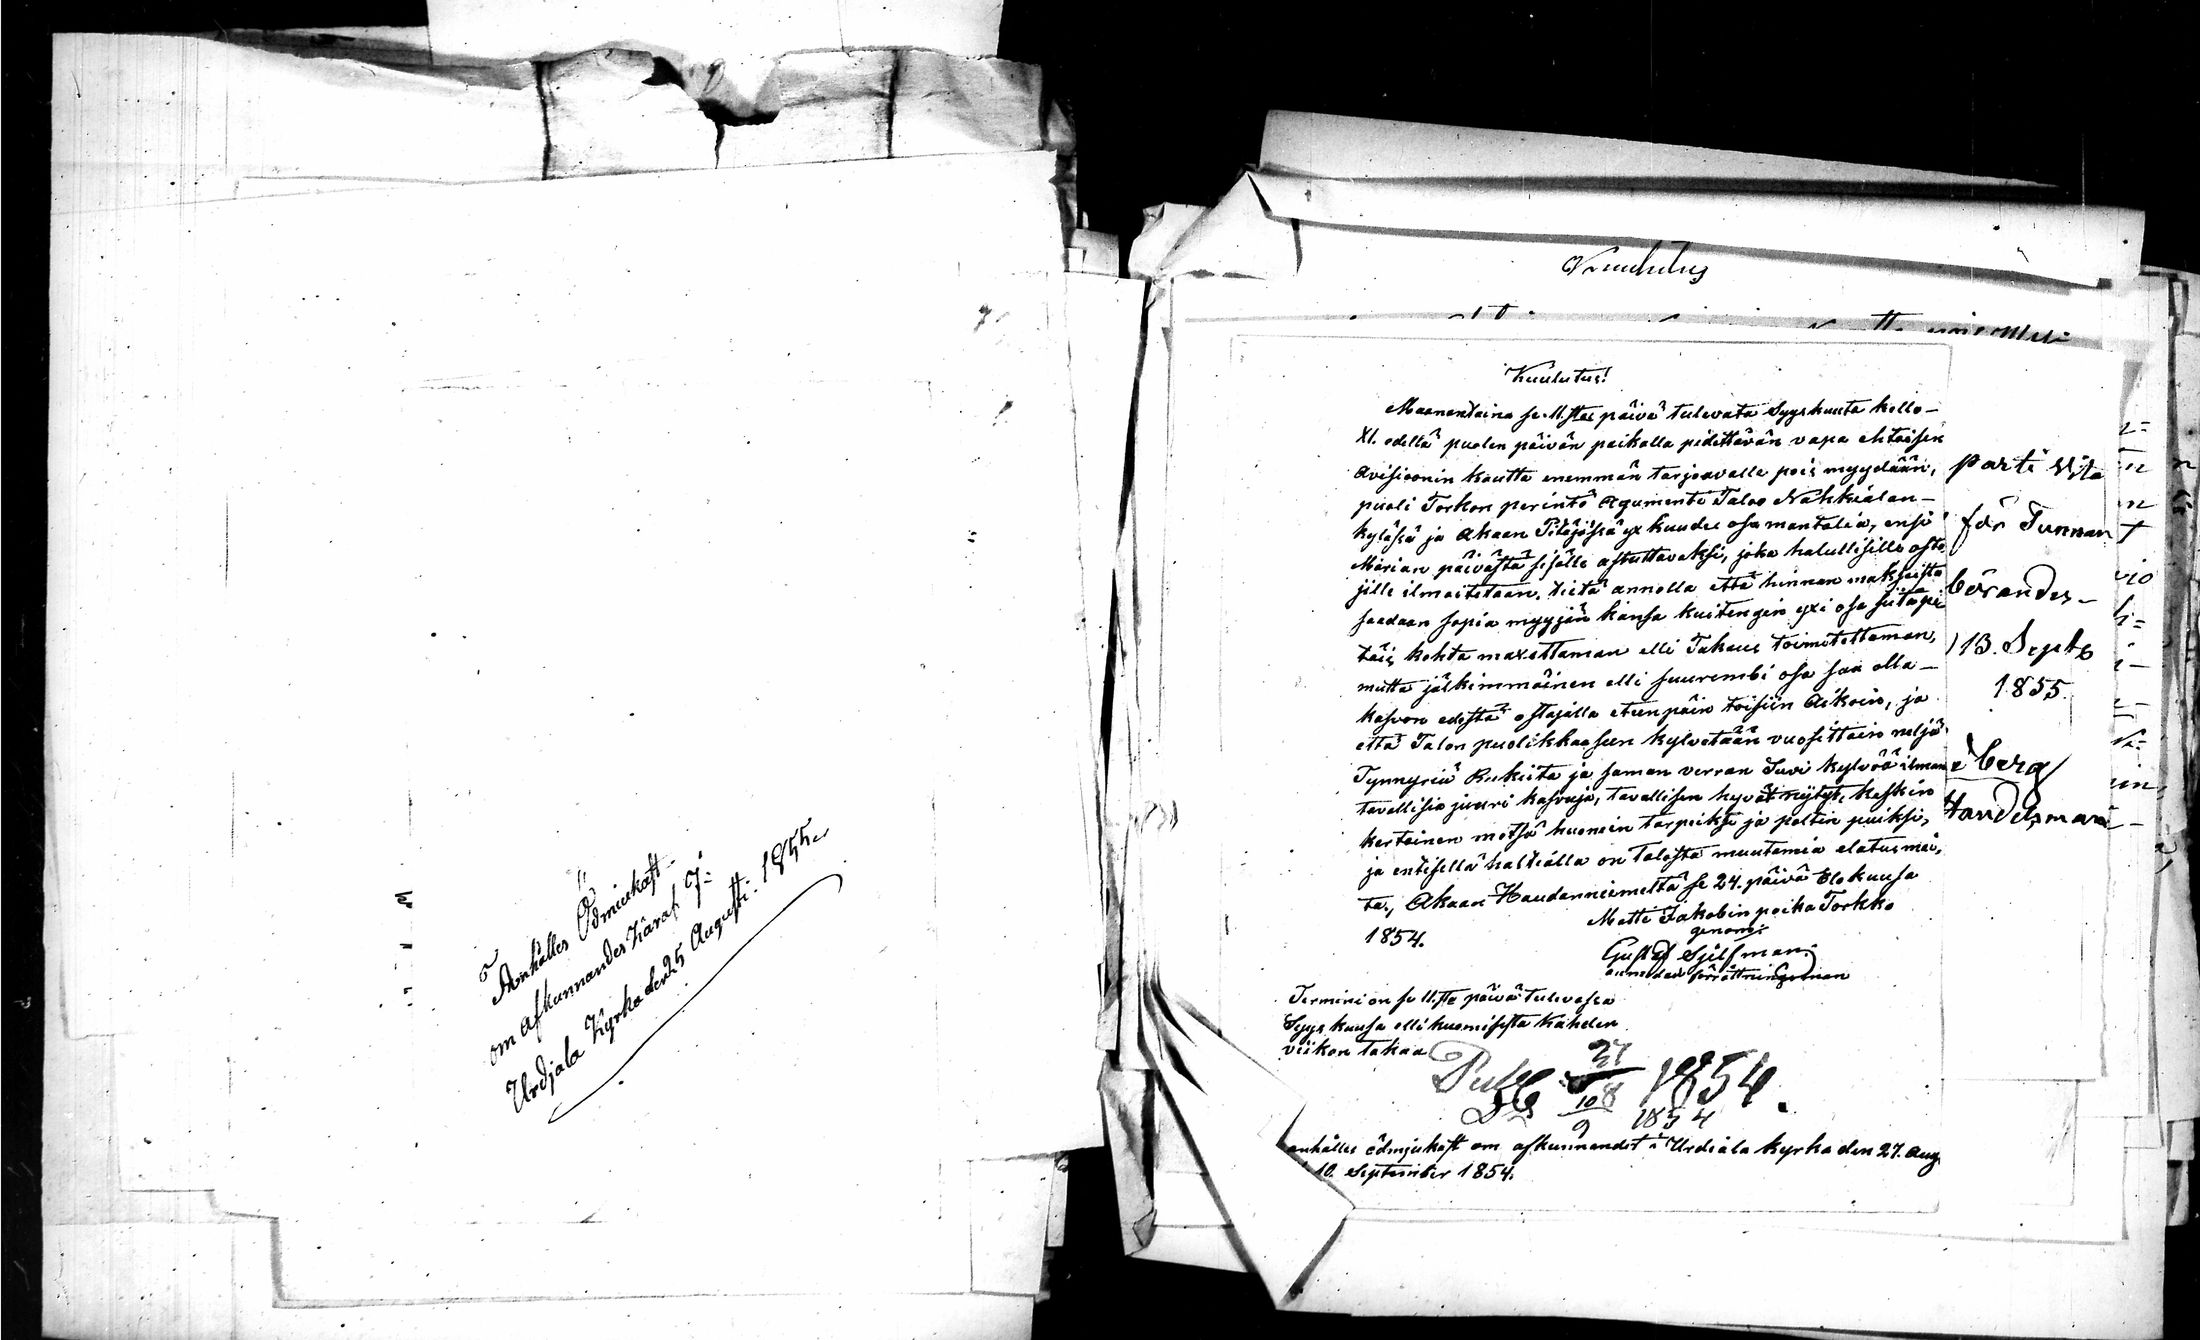 Anhålles Ödmiukast
om afkunnandes häraf i
Urdjala Kyrka den 25 Augusti. 1855.
Kuulutus
Kuulutus!
Maanantaina se 11.sta päivä tulevata Syyskuuta kello-
XI. edeltä puolen päivän paikalla pidettävän vapa ehtoisen
Avisioonin kautta enemmän tarjoavalle pois myydään,
puoli Torkon perintö Agumenti Taloo Nahkialan-
kylässä ja Akaan Pitäjässä yx kuudes osa mantalia, ensi
Marian päivästä sisälle astuttavaksi, joka halullisille osta
jille ilmoitetaan, tietä annolla että hinnan maksusta
saadaan sopia myyjän kansa kuitengin yxi osa
täis kohta maxettaman elli Takaus toimitettaman,
mutta jälkimmäinen elli suurembi osa saa olla-
kasvon edestä ostajalla eteenpäin toisiin Aikoin, ja
että Talon puolikkaasen kylvetään vuosittain neljä
Tynnyriä Rukiita ja saman verran Suvi kylvöä ilman
tavallisia juuri kasvuja, tavallisen hyvät niityt, keskin
kertainen metsä huonein tarpeiksi ja poltin puiksi,
ja entisellä haltialla on Talosta muutamia elatusmäi,
ta, Akaan Haudanniemeltä se 24. päivä Elokuusa
1854.
Matti Jakobin poika Torkko
genom
Gustaf Sjelfman
ärnedal förrättningsman
Termini on se 11.sta päivä tulevassa
Syys kuusa elli huomisesta kahden
viikon takaa
Publ 27/8 1854.
10/9 1854
anhålles ödmjukast om afkunnandet i Urdiala kyrka den 27. Aug
10. September 1854.
parti
för Tunnan
börandes-
13. Septb
1855.
berg
Handelsman